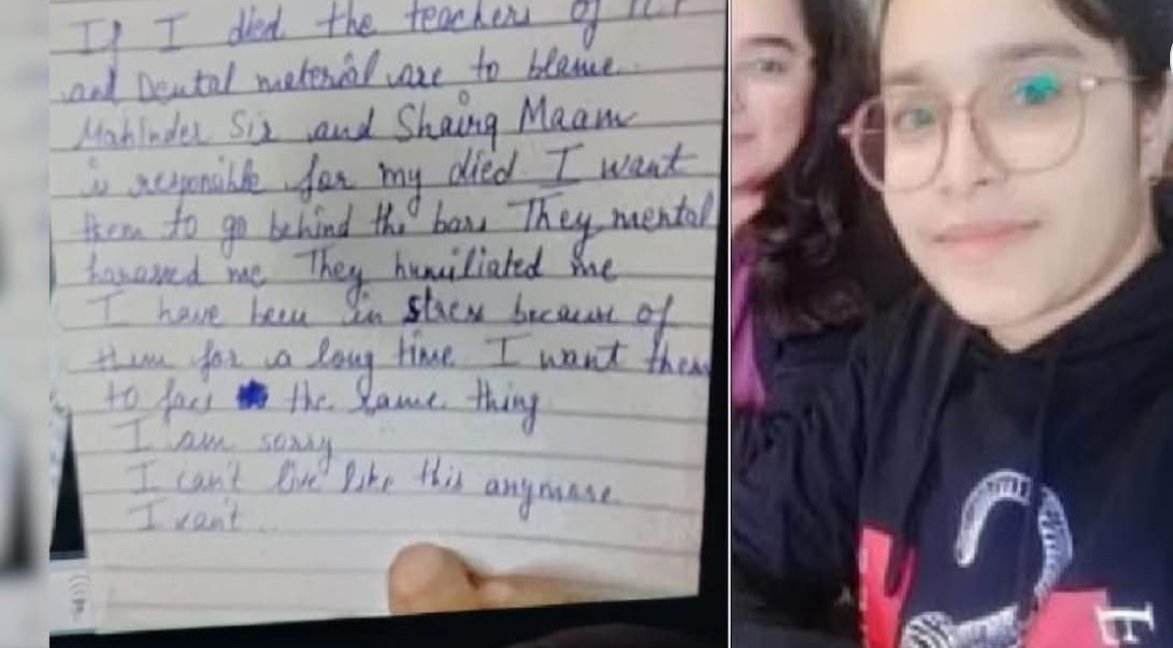 If I died the teachers of
and Dental meterial are to blame.
Mahinder Sir and Shairg Maam
is responable for my died I want
them to go behind the bars They mental
harassed me They humiliated me
I have been in stress because of
them for a long time I want them
to face the same thing
I am sorry
I can't live like this anymore
I can't
E